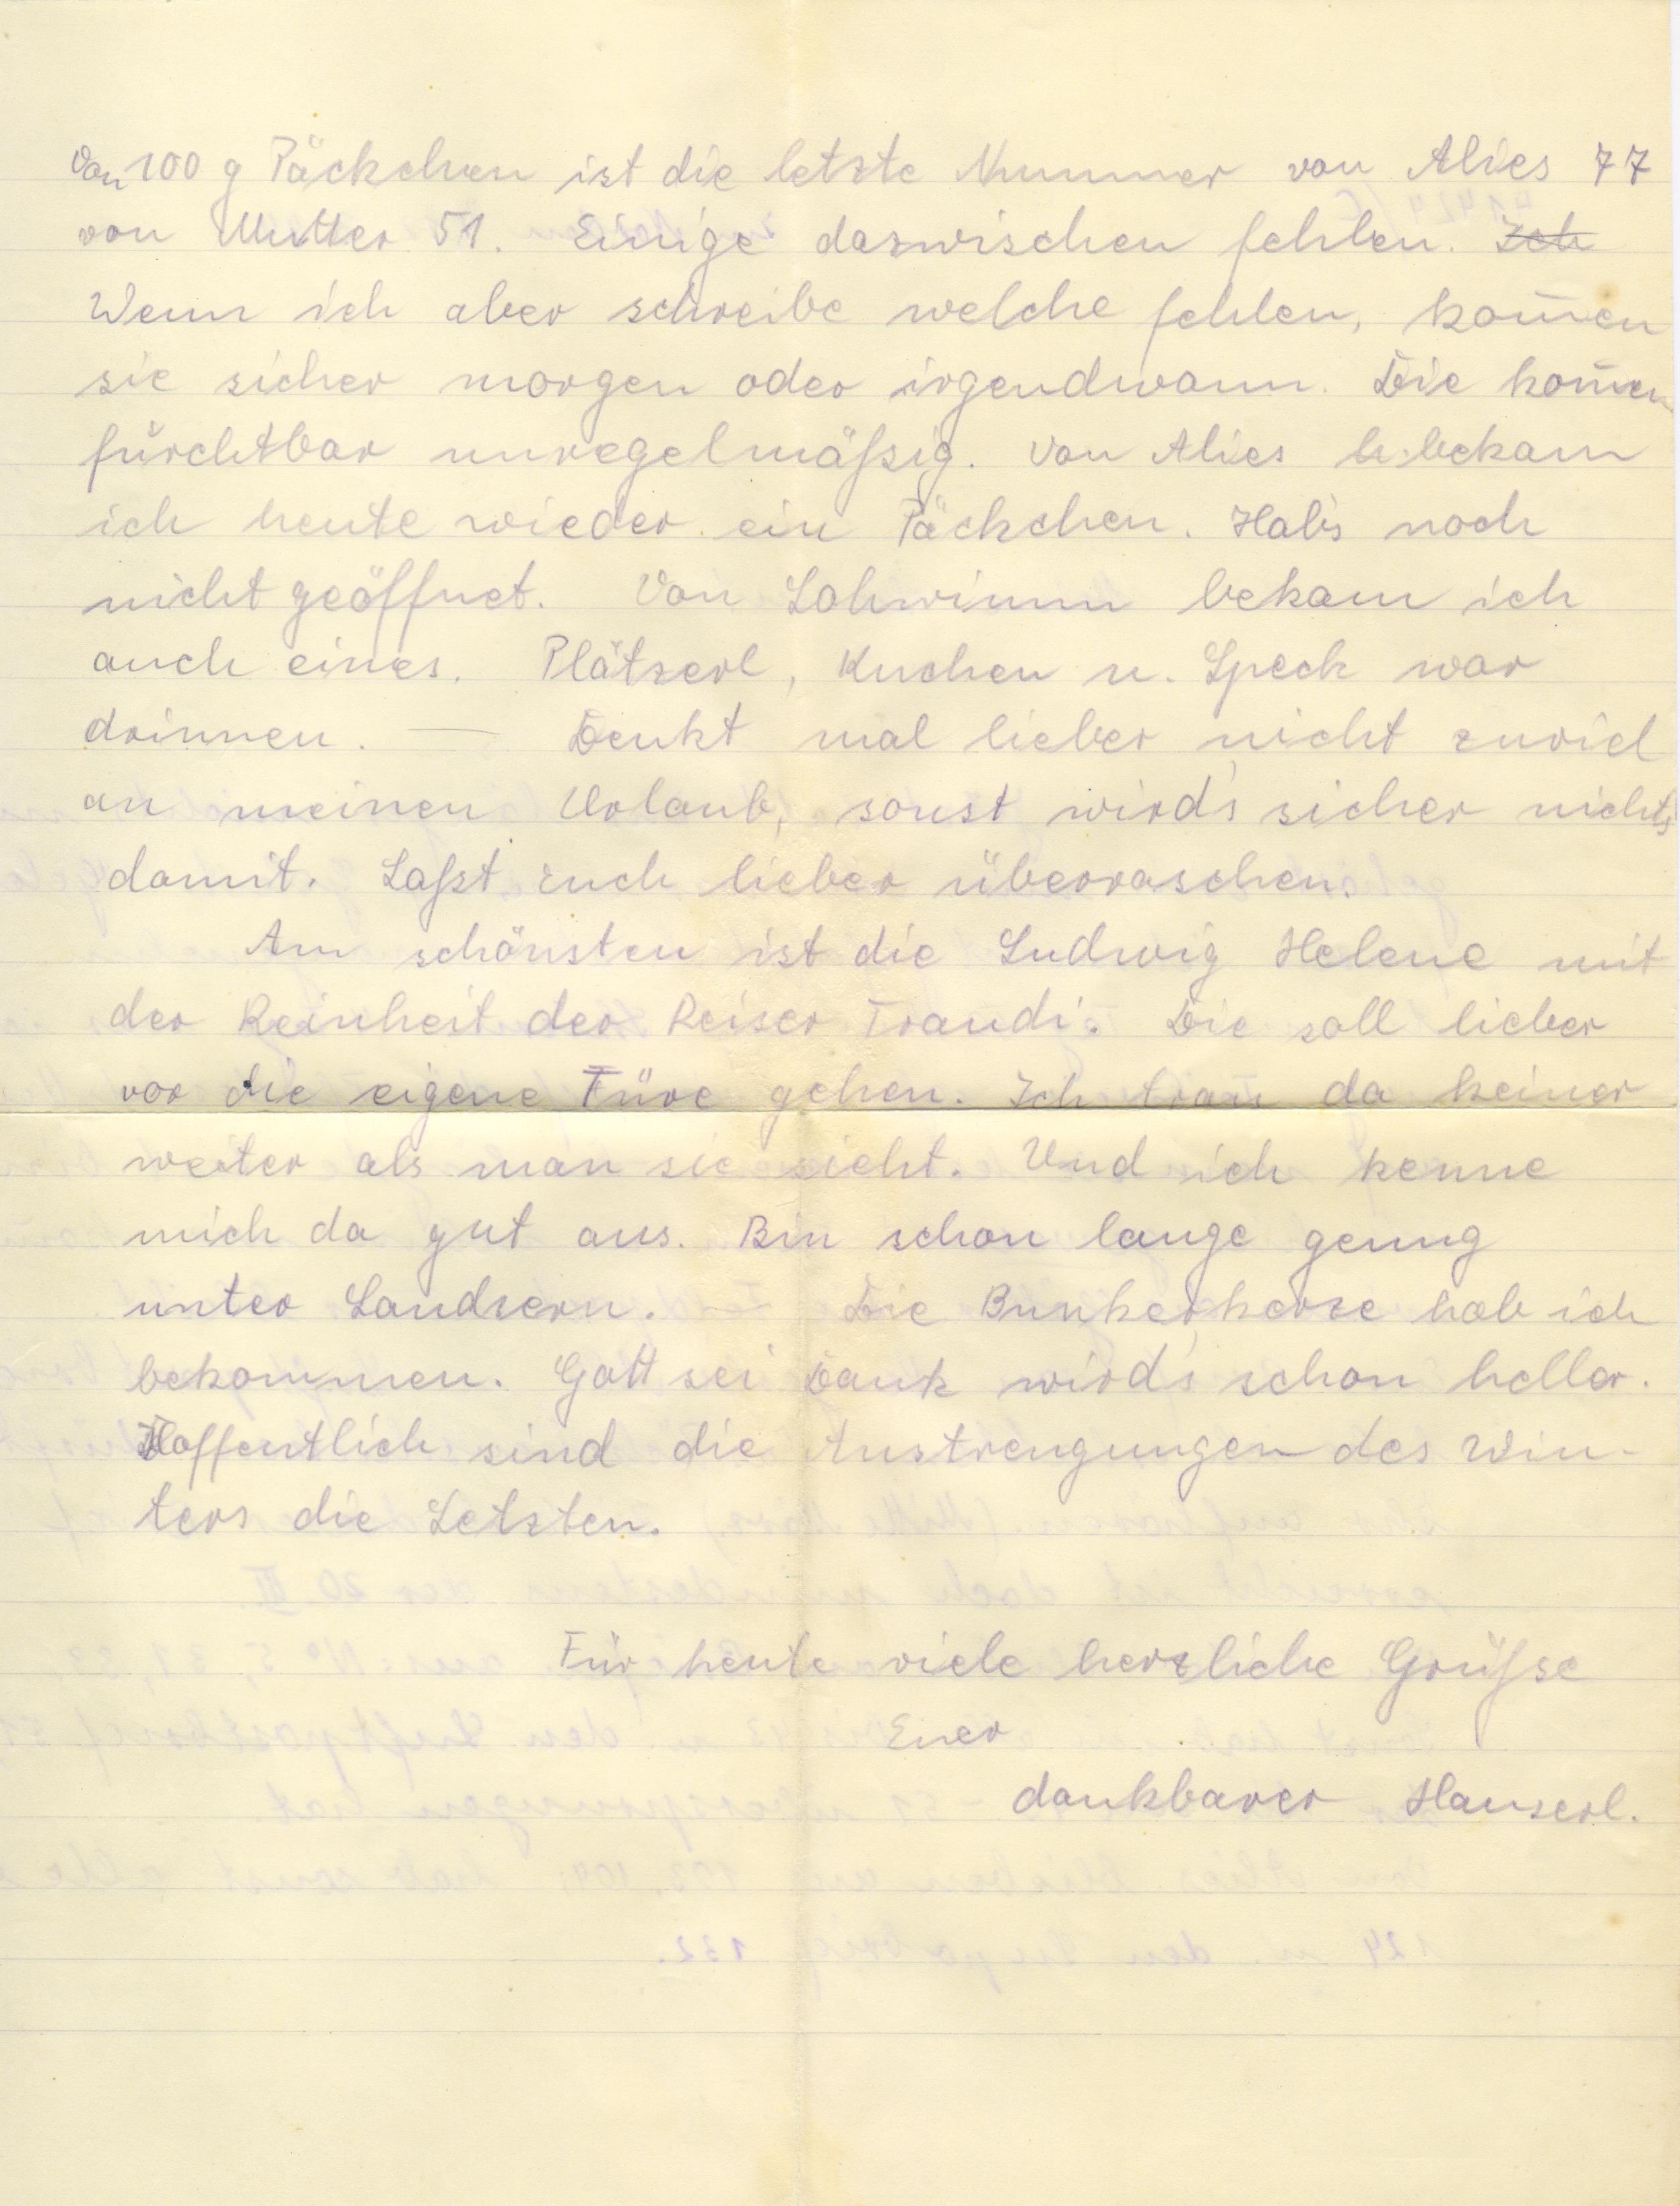 Von 100 g Päckchen ist die letzte Nummer von Alies 77
von Mutter 51. Einige dazwischen fehlen. Ich
Wenn ich aber schreibe welche fehlen, kom̅en
sie sicher morgen oder irgendwann. Die kom̅en
fürchtbar unregelmäßig. Von Alies b. bekam
ich heute wieder ein Päckchen. Hab's noch
nicht geöffnet. Von Lohwimm bekam ich
auch eines. Plätzerl, Kuchen u. Speck war
drinnen. — Denkt mal lieber nicht zuviel
an meinen Urlaub, sonst wird's sicher nichts
damit. Laßt Euch lieber überraschen.
Am schönsten ist die Ludwig Helene mit
der Reinheit der Reiser Traudi. Die soll lieber
vor die eigene Türe gehen. Ich trau da keiner
weiter als man sie sieht. Und ich kenne
mich da gut aus. Bin schon lange genug
unter Landsern. — Die Bunkerkerze hab ich
bekommen. Gott sei Dank wird's schon heller.
Hoffentlich sind die Anstrengungen des Win-
ters die Letzten.
Für heute viele herzliche Grüße
Euer
dankbarer Hanserl.